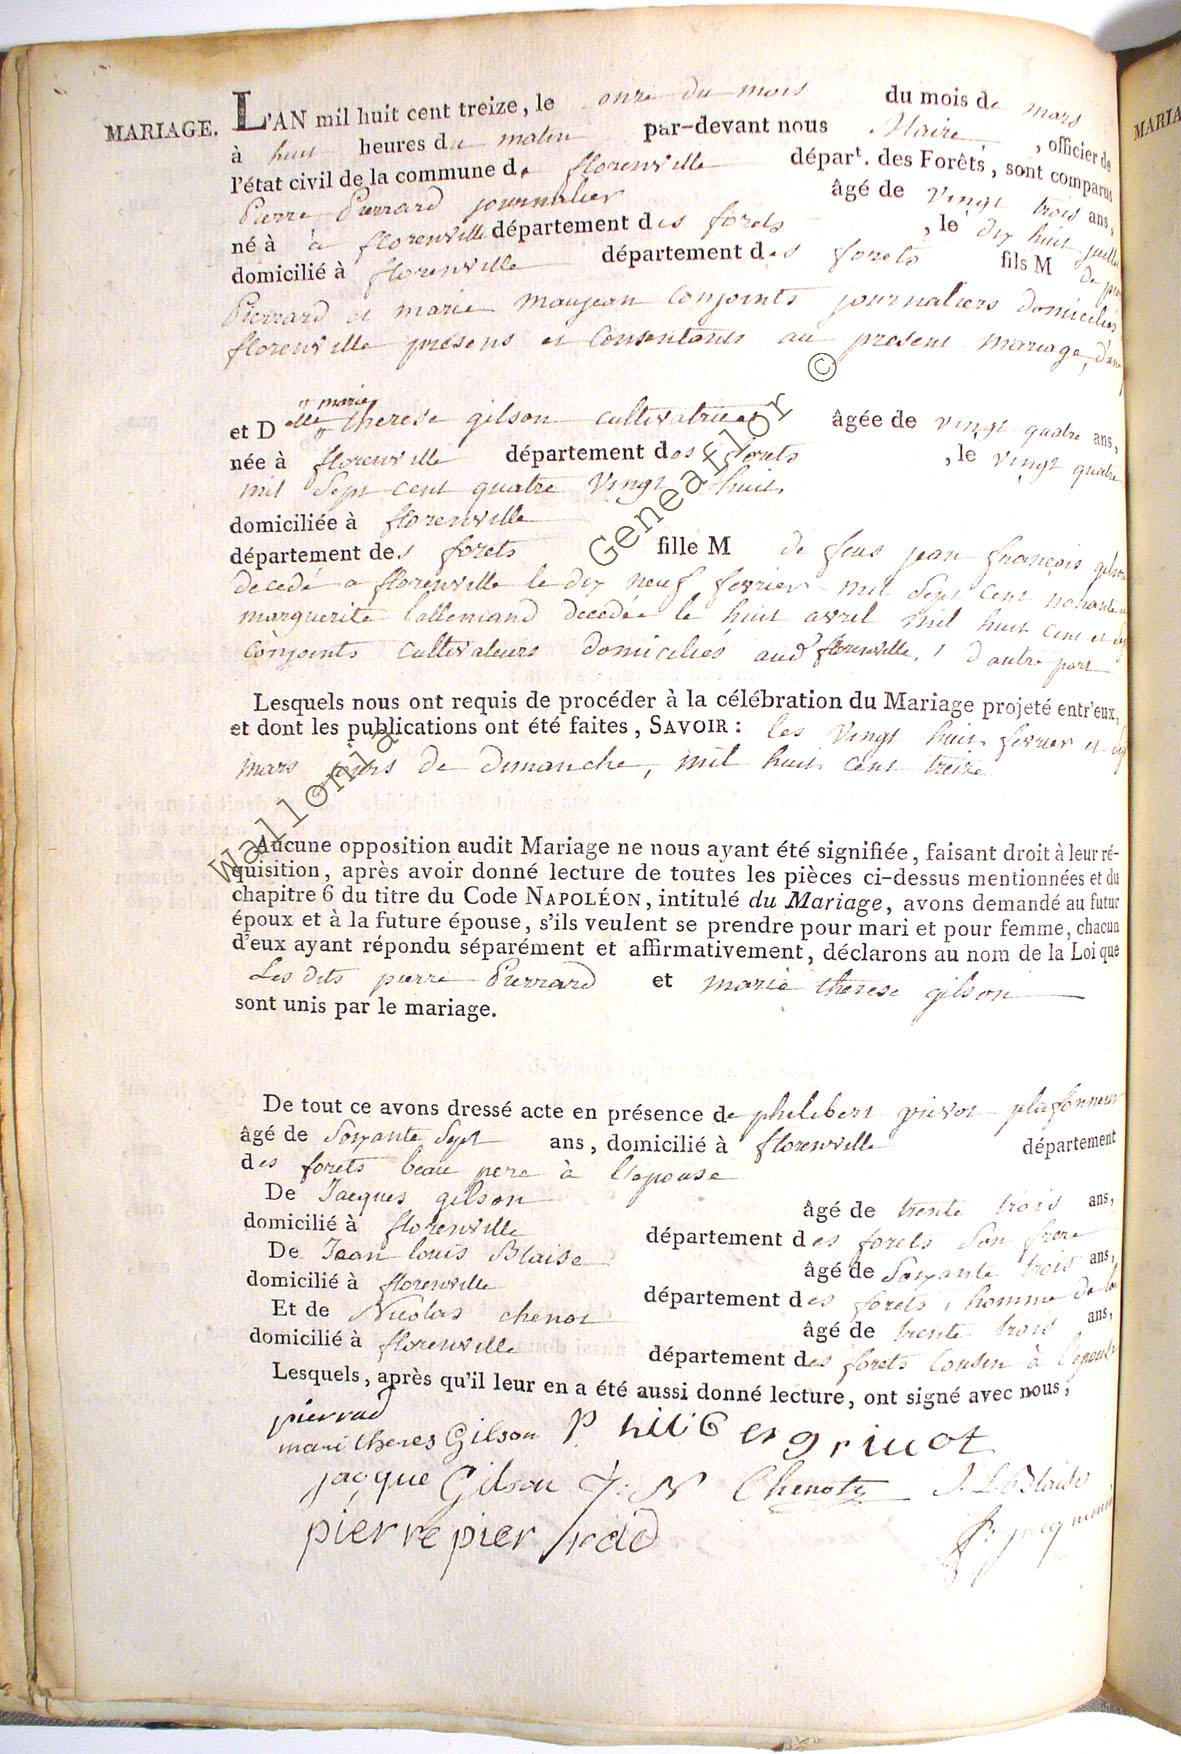 MARIAGE.
L'AN mil huit cent treize, le onze du mois du mois de mars
à huit heures du matin par-devant nous Maire, officier de
l'état civil de la commune de florenville départ. des Forêts, sont comparus
Pierre Pierrard journalier âgé de vingt trois ans,
né à à florenville département des forets, le dix huit juillet
domicilié à florenville département des forets fils M de
Pierrard et marie maujean conjoints journaliers domiciliés
florenville présens et consentants au present mariage, d'une
et Delle marie therese gilson cultivatrice âgée de vingt quatre ans,
née à florenville département des forets, le vingt quatre
mil sept cent quatre vingt huit
domiciliée à florenville
département des forets fille M de feus jean françois gilson
decedé a florenville le dix neuf fevrier mil sept cent nonante
marguerite lallemand decedée le huit avril mil huit cent et sept
conjoints cultivateurs domiciliés aud florenville, d'autre part
Lesquels nous ont requis de procéder à la célébration du Mariage projeté entr'eux,
et dont les publications ont été faites, SAVOIR : les vingt huit fevrier et sept
mars jours de dimanche, mil huit cent treize
Aucune opposition audit Mariage ne nous ayant été signifiée, faisant droit à leur ré-
quisition, après avoir donné lecture de toutes les pièces ci-dessus mentionnées et du
chapitre 6 du titre du Code NAPOLÉON, intitulé du Mariage, avons demandé au futur
époux et à la future épouse, s'ils veulent se prendre pour mari et pour femme, chacun
d'eux ayant répondu séparément et affirmativement, déclarons au nom de la Loi que
Les dits pierre Pierrard et marie therese gilson
sont unis par le mariage.
De tout ce avons dressé acte en présence de philibert grivot plafonneur
âgé de soixante sept ans, domicilié à florenville département
des forets beau pere à l'epouse
De Jacques gilson âgé de trente trois ans,
domicilié à florenville département des forets son frere
De Jean louis Blaise âgé de soixante trois ans,
domicilié à florenville département des forets, homme de loi
Et de Nicolas chenot âgé de trente trois ans,
domicilié à florenville département des forets cousin à l'epouse
Lesquels, après qu'il leur en a été aussi donné lecture, ont signé avec nous,
pierrad
mari theres Gilson Philiber grivot
jacque Gilson J: N Chenot J L Blaise
pierre pierrad
Wallonia Geneaflor ©
MARIA